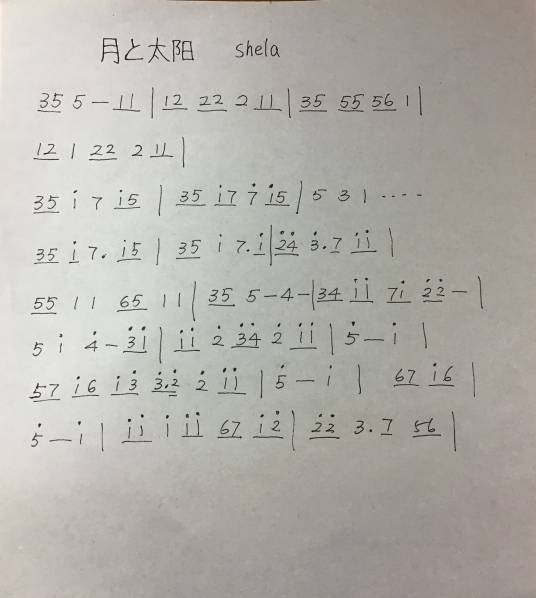 月と太阳 shela
35 5 - 11 | 12 22 2 11 | 35 55 56 1 |
12 1 22 2 11 |
35 i 7 i5 | 35 i7 7̇ i5 | 5 3 1 ····
35 i 7. i5 | 35 i 7. i | 2̇4̇ 3̇. 7 ii |
55 1 1 65 1 1 | 35 5 - 4 - | 34 ii 7i 2̇2̇ - |
5 i 4̇ - 3̇i | ii 2̇ 3̇4̇ 2̇ ii | 5̇ — i |
57 i6 i3̇ 3̇.2̇ 2̇ ii | 5̇ — i | 67 i6 |
5̇ — i | ii i ii 67 i2̇ | 2̇2̇ 3. 7 56 |